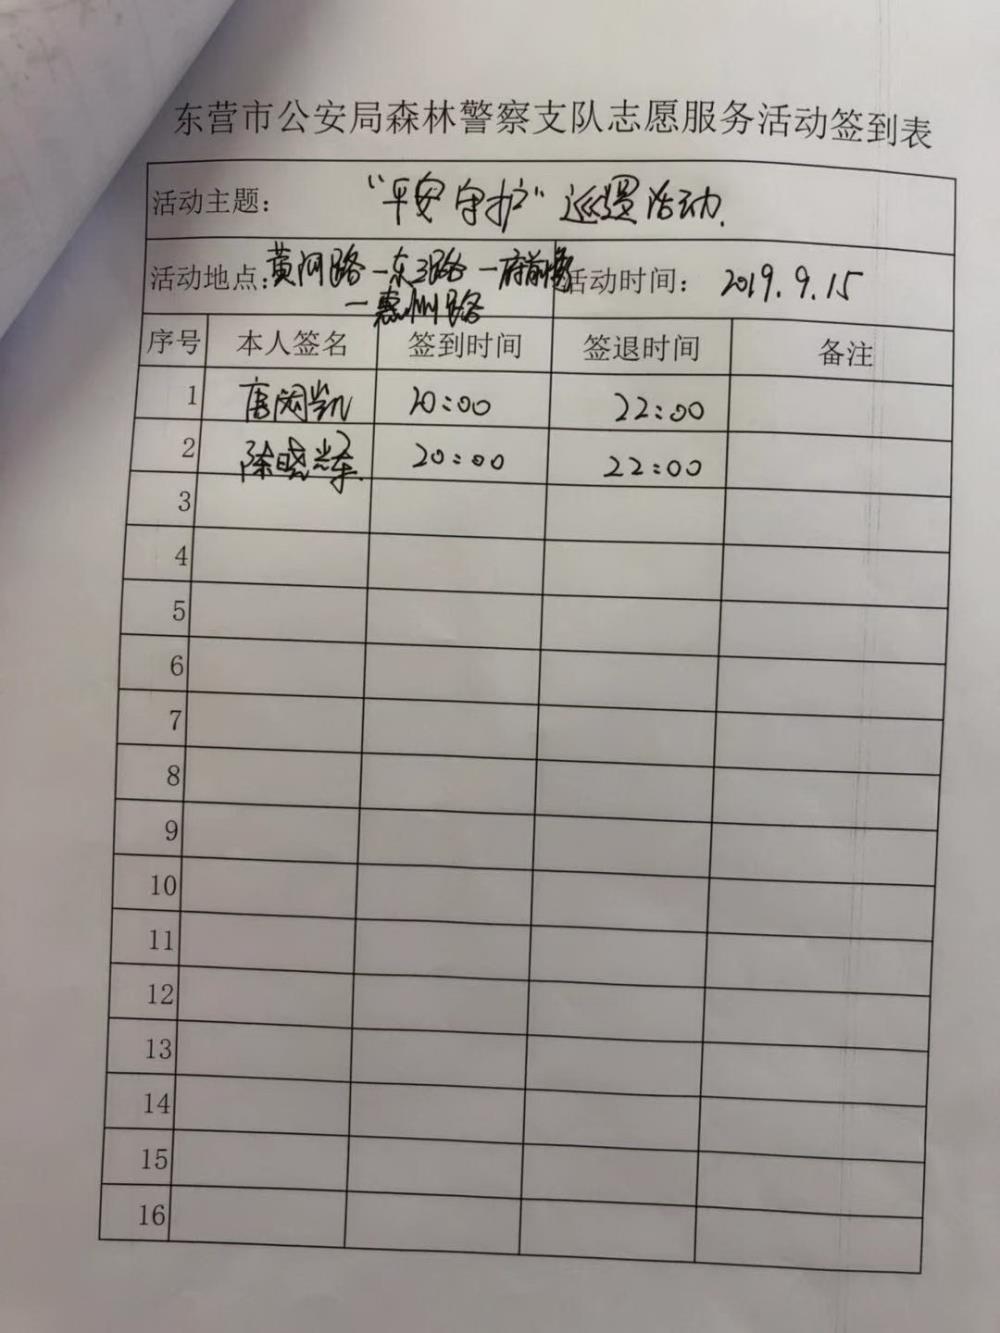 东营市公安局森林警察支队志愿服务活动签到表
活动主题： “平安守护”巡逻活动.
活动地点：黄河路－东三路－府前 活动时间： 2019.9.15
－惠州路
序号 本人签名 签到时间 签退时间 备注
1 唐闵凯 20:00 22:00
2 徐晓 20:00 22:00
3
4
5
6
7
8
9
10
11
12
13
14
15
16